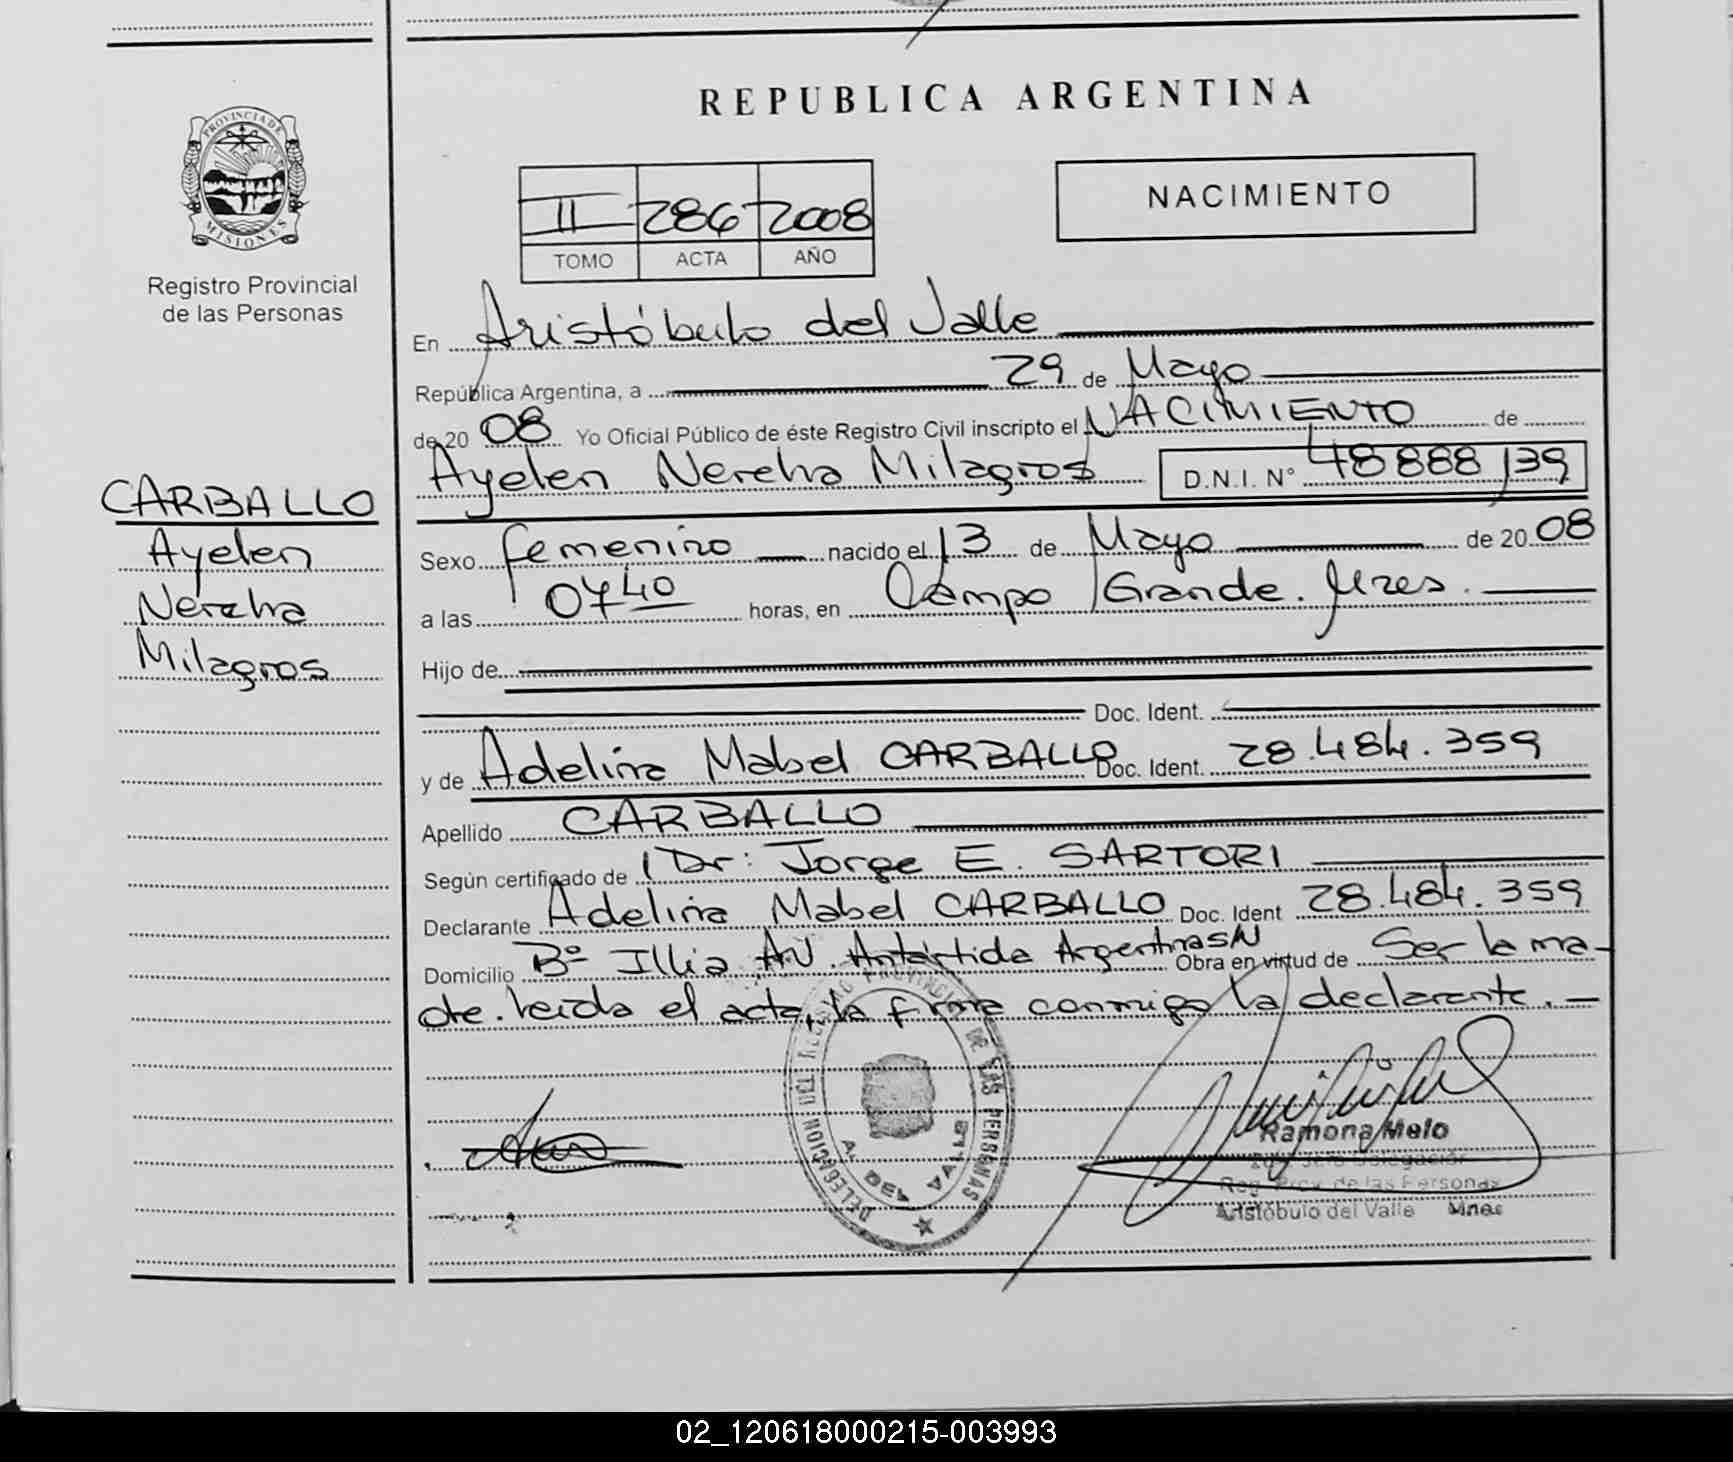 REPUBLICA ARGENTINA
PROVINCIA DE
MISIONES
Registro Provincial
de las Personas
NACIMIENTO
II 286 2008
TOMO ACTA AÑO
En Aristóbulo del Valle
República Argentina, a 29 de Mayo
de 20 08 Yo Oficial Público de éste Registro Civil inscripto el NACIMIENTO de
Ayelen Nereha Milagros D.N.I. N° 48888139
CARBALLO
Ayelen
Nereha
Milagros
Sexo femenino nacido el 13 de Mayo de 20 08
a las 0740 horas, en Campo Grande. Mnes.
Hijo de
Doc. Ident.
y de Adelina Mabel CARBALLO Doc. Ident. 28.484.359
Apellido CARBALLO
Según certificado de Dr: Jorge E. SARTORI
Declarante Adelina Mabel CARBALLO Doc. Ident 28.484.359
Domicilio B° Illia AV. Antártida Argentina S/N Obra en virtud de Ser la ma-
dre. leída el acta, la firma conmigo la declarante.
DELEGACION DEL REGISTRO PROVINCIAL DE LAS PERSONAS
A. DEL VALLE
Ramona Melo
Delegación
Reg. Prov. de las Personas
Aristóbulo del Valle Mnes
02_120618000215-003993